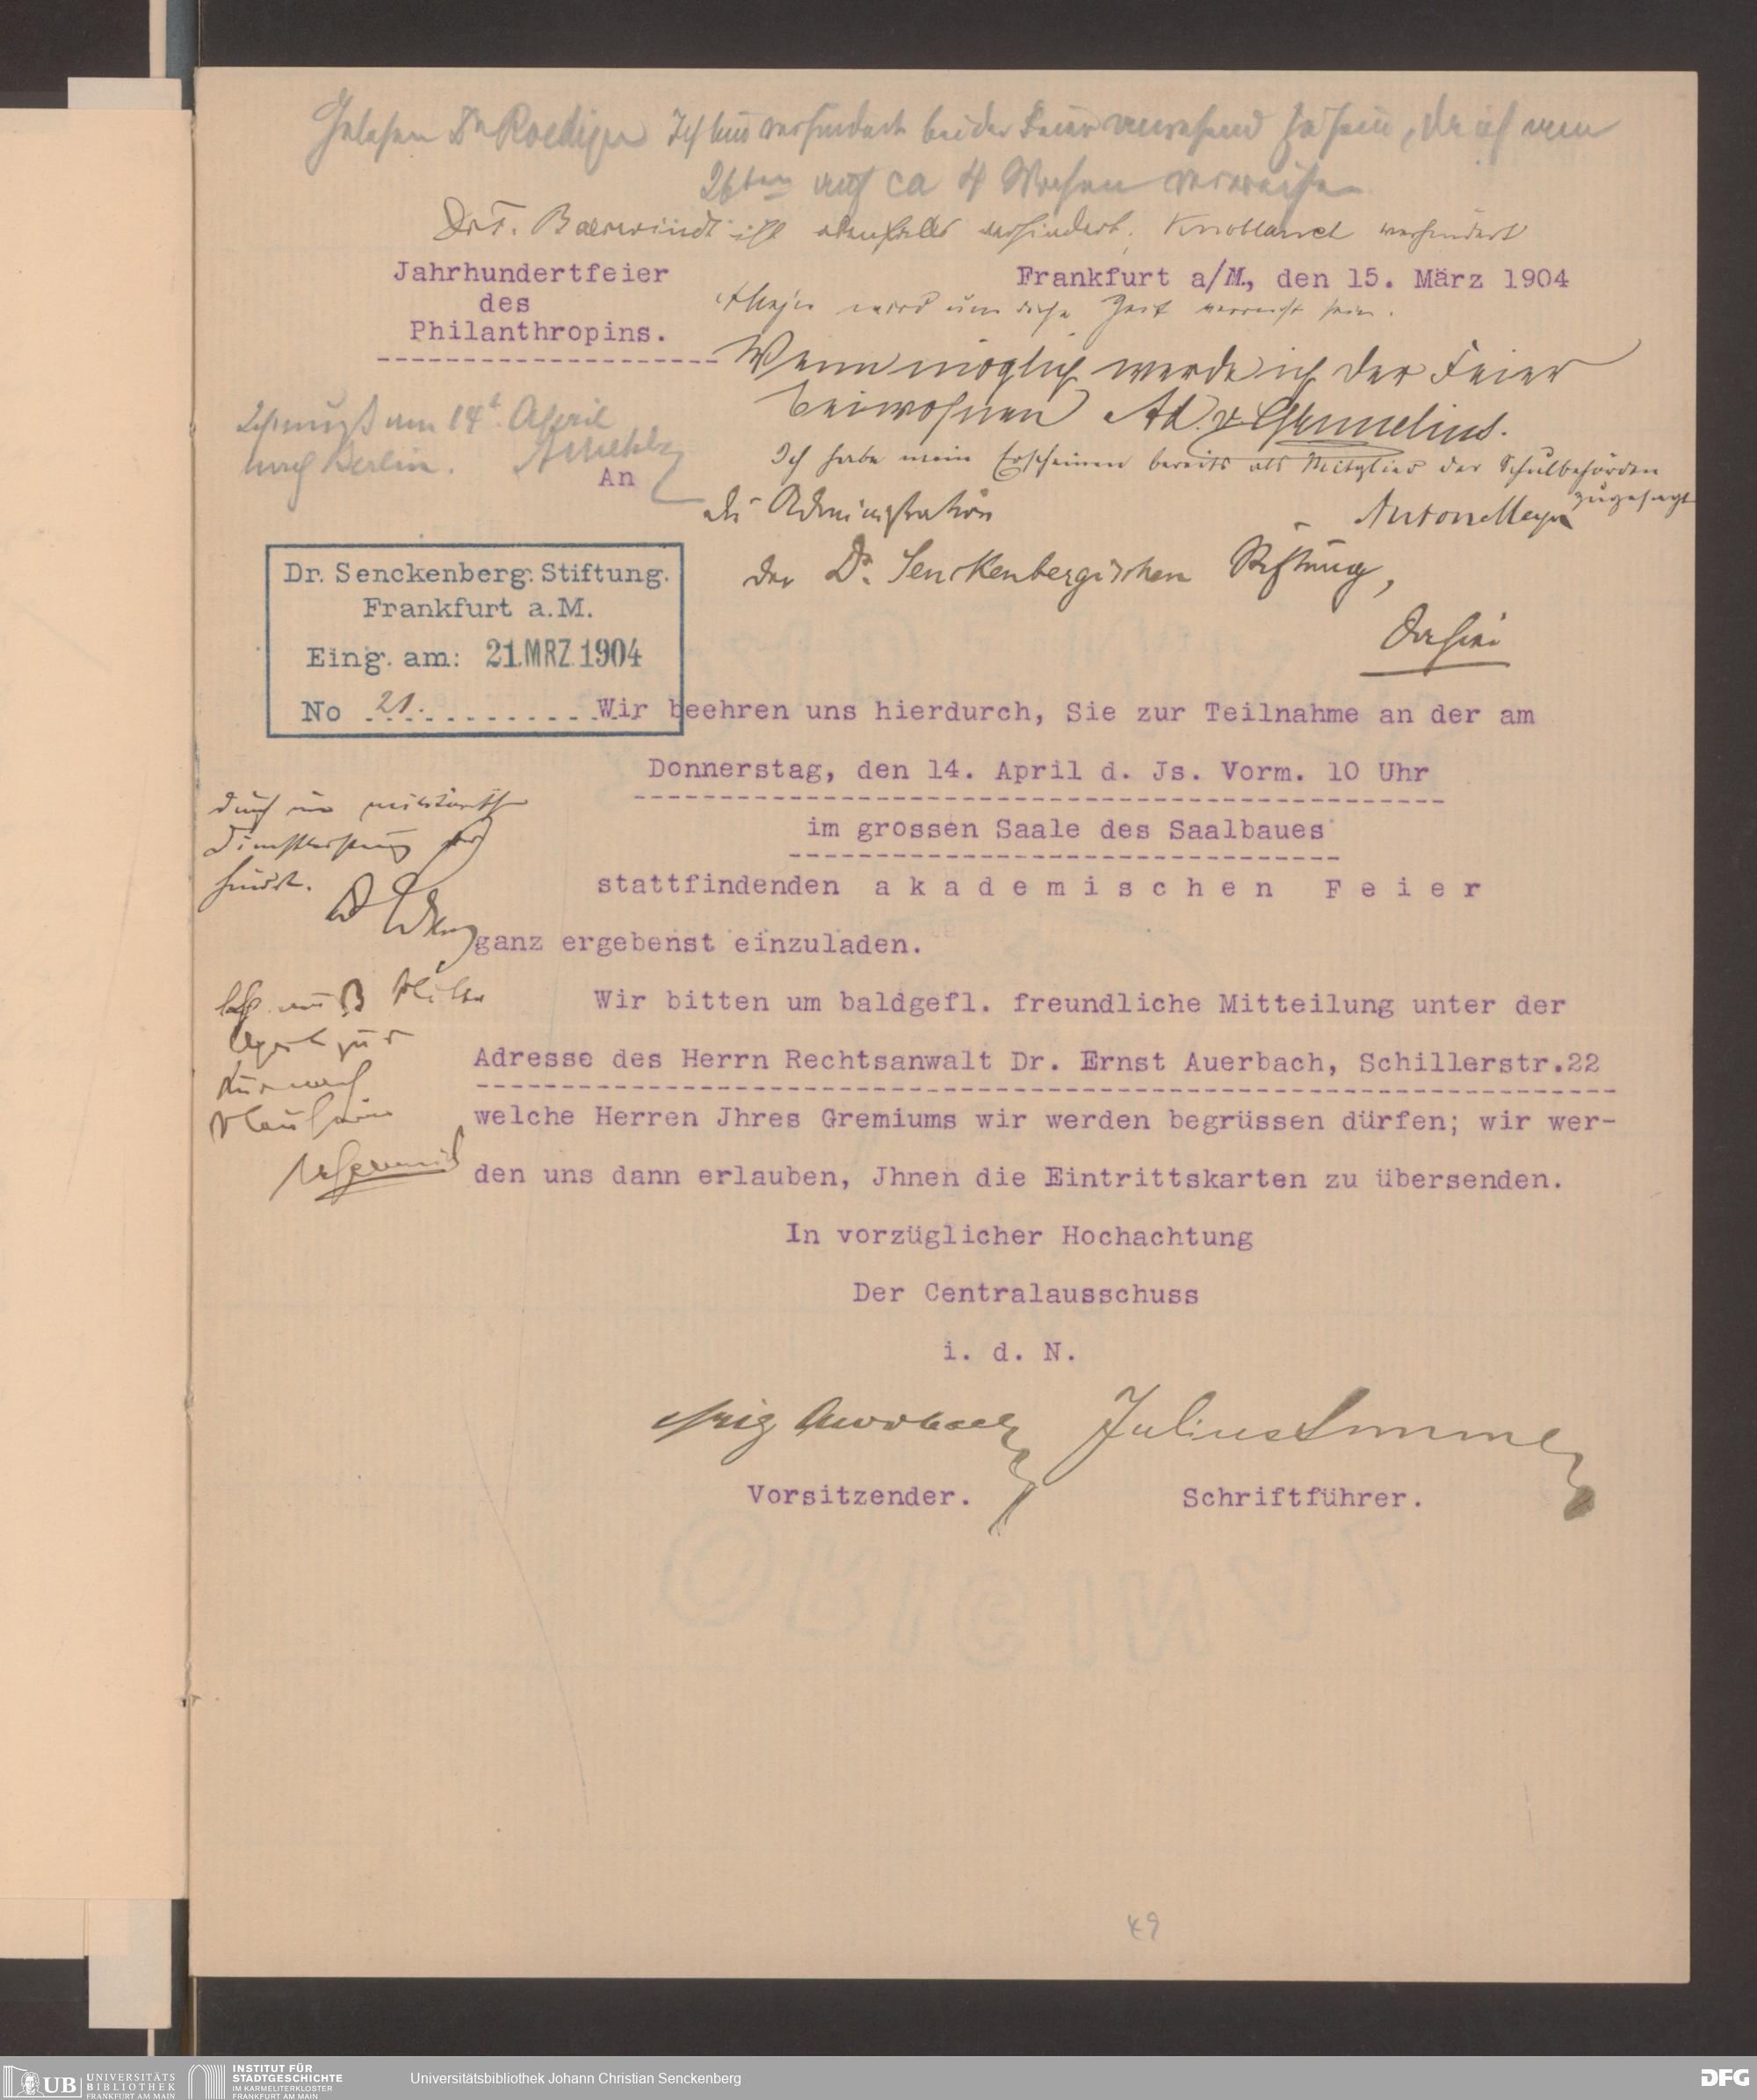 Gelesen Dr Roediger Ich bin verhindert bei der Feier anwesend zu sein, da ich vom
26ten auf ca 4 Wochen verreise
Dr F. Baerwindt ist ebenfalls verhindert. Knoblauch verhindert
Jahrhundertfeier
des
Philanthropins.
Frankfurt a/M., den 15. März 1904
wird um diese Zeit verreist sein.
Wenn möglich werde ich der Feier
beiwohnen Ad. v.
Ich habe mein Erscheinen bereits als Mitglied der Schulbehörden
zugesagt
Anton Meyer
Ich muß am 14t. April
nach Berlin.
An
die Administration
der Dr. Senckenbergischen Stiftung,
Dahier
Dr. Senckenberg. Stiftung.
Frankfurt a.M.
Eing. am: 21.MRZ.1904
No 21.
Wir beehren uns hierdurch, Sie zur Teilnahme an der am
Donnerstag, den 14. April d. Js. Vorm. 10 Uhr
im grossen Saale des Saalbaues
stattfindenden akademischen Feier
ganz ergebenst einzuladen.
durch
hindert.
Wir bitten um baldgefl. freundliche Mitteilung unter der
Adresse des Herrn Rechtsanwalt Dr. Ernst Auerbach, Schillerstr.22
welche Herren Jhres Gremiums wir werden begrüssen dürfen; wir wer-
den uns dann erlauben, Jhnen die Eintrittskarten zu übersenden.
muß
April zur
Kur nach
Nauheim
In vorzüglicher Hochachtung
Der Centralausschuss
i. d. N.
Auerbach
Julius
Vorsitzender.
Schriftführer.
ORIGINAL
49
UB UNIVERSITÄTS
BIBLIOTHEK
FRANKFURT AM MAIN
INSTITUT FÜR
STADTGESCHICHTE
IM KARMELITERKLOSTER
FRANKFURT AM MAIN
Universitätsbibliothek Johann Christian Senckenberg
DFG